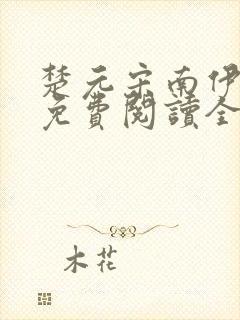 楚元宋南伊
免費閱讀全
木花